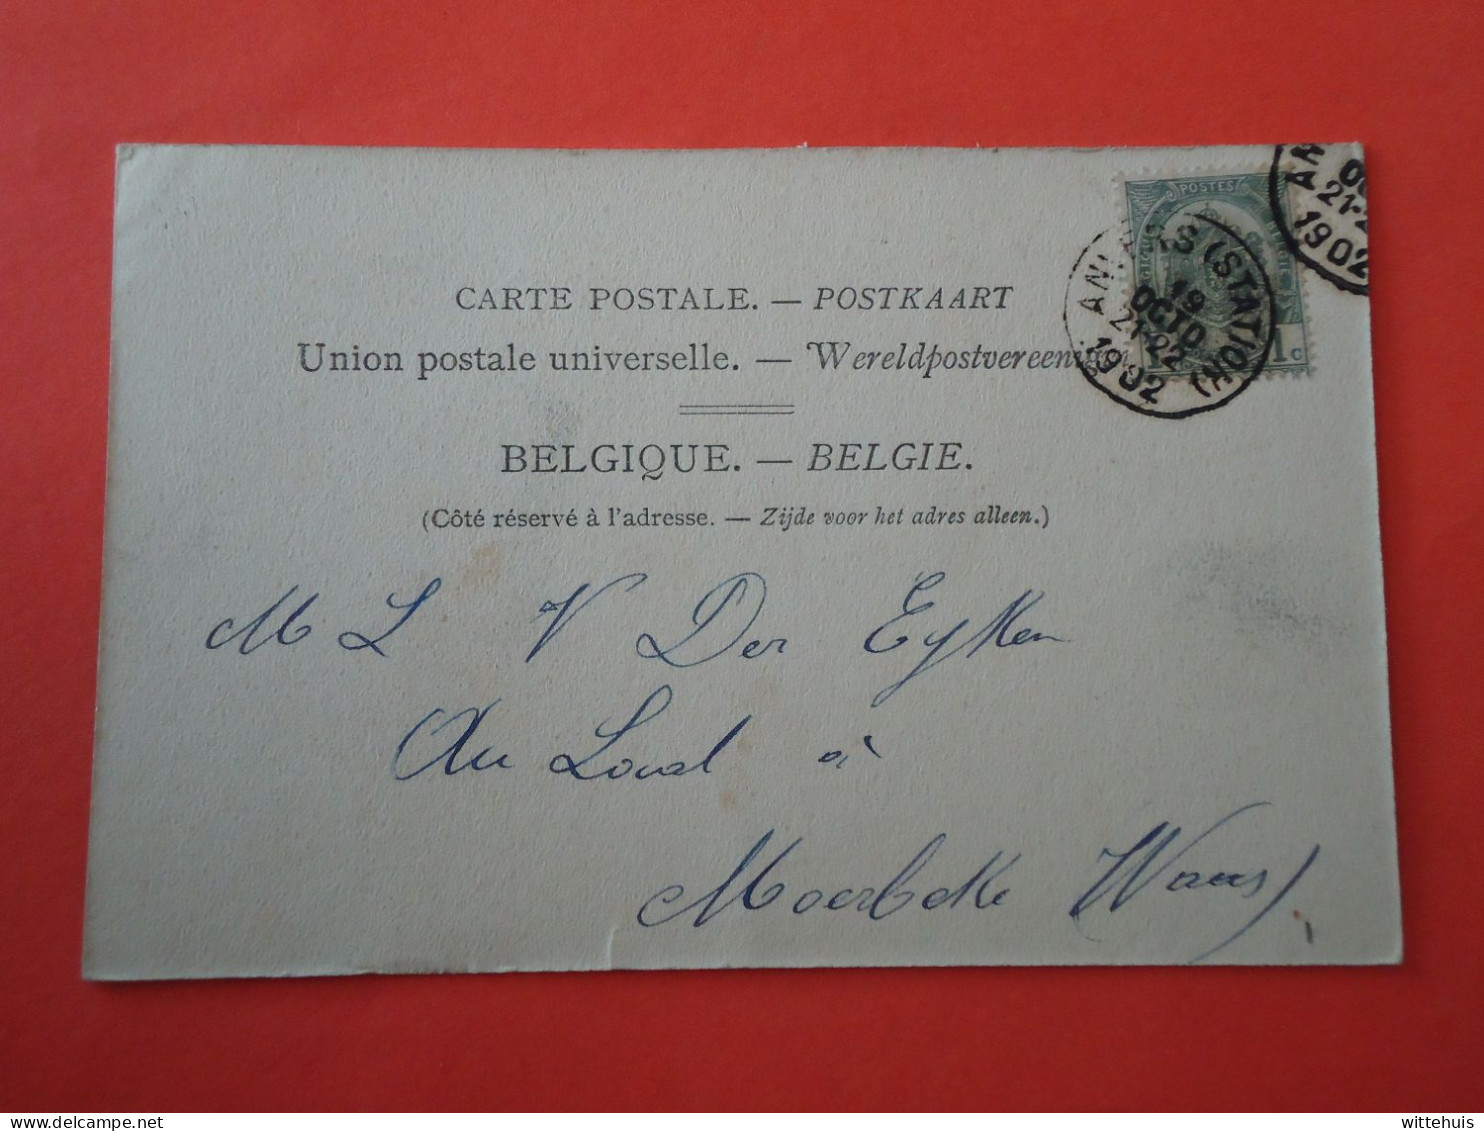 CARTE POSTALE. — POSTKAART
Union postale universelle. — Wereldpostvereeniging
BELGIQUE. — BELGIE.
(Côté réservé à l'adresse. — Zijde voor het adres alleen.)
POSTES
1 c
ANVERS (STATION)
19
OCTO
21-22
1902
AN
OC
21-2
1902
M L V Der Eyken
Au Laval à
Moerbeke Waas)
wittehuis